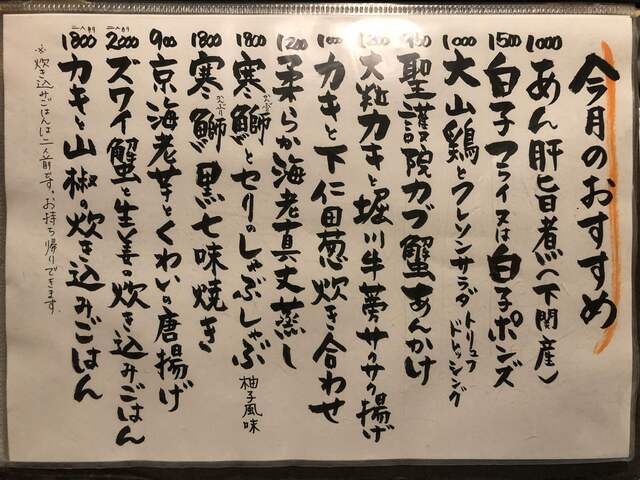 今月のおすすめ
1000 あん肝旨煮(下関産)
1500 白子フライ又は白子ポンズ
1000 大山鶏とクレソンサラダ トリュフドレッシング
950 聖護院カブ蟹あんかけ
1200 大粒カキと堀川牛蒡サクサク揚げ
1000 カキと下仁田葱炊き合わせ
1200 柔らか海老真丈蒸し
1800 寒鰤とセリのしゃぶしゃぶ 柚子風味
1800 寒鰤黒七味焼き
900 京海老芋とくわいの唐揚げ
2000 ズワイ蟹と生姜の炊き込みごはん
1800 カキと山椒の炊き込みごはん
※炊き込みごはんは二人前です。お持ち帰りできます。